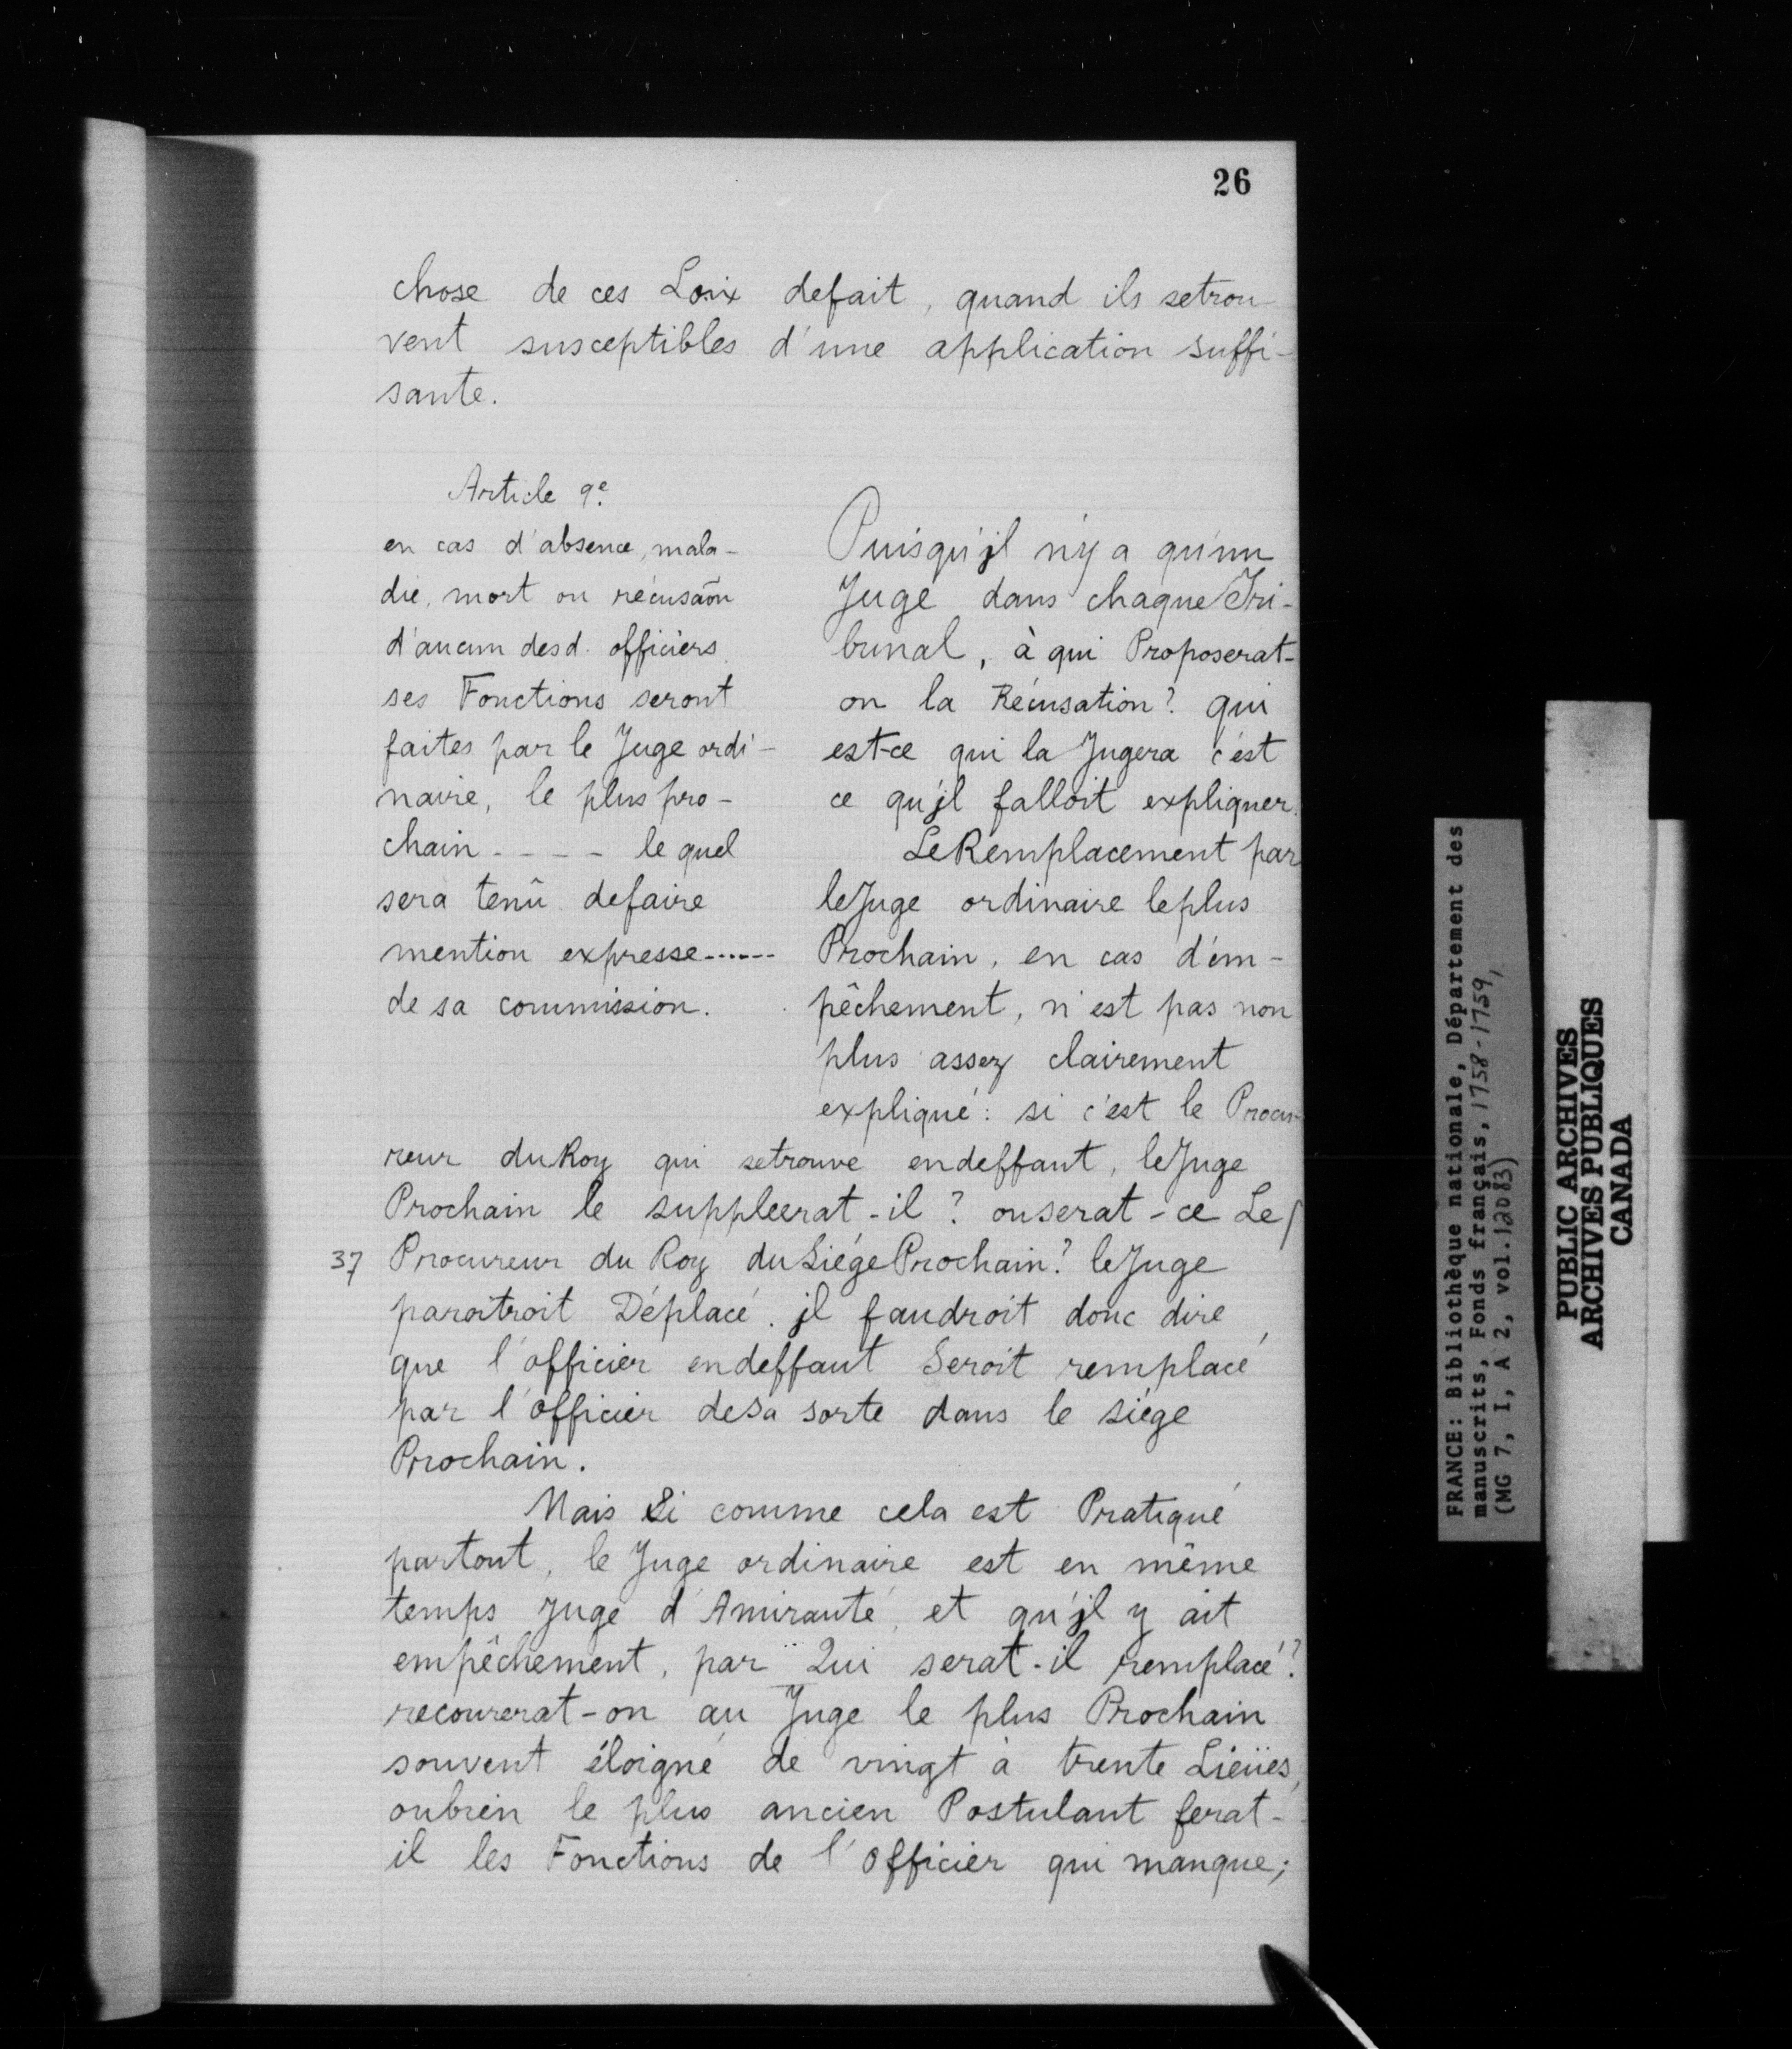 26
chose de ces Loix defait, quand ils setrou-
vent susceptibles d'une application suffi-
sante.
Article 9e.
en cas d'absence, mala-
die, mort ou récusaõn
d'aucun desd. officiers
ses Fonctions seront
faites par le Juge ordi-
naire, le plus pro-
chain - - - - le quel
sera tenû defaire
mention expresse ------
de sa commission.
Puisqu'jl n'y a qu'un
Juge dans chaque Tri-
bunal, à qui Proposerat-
on la Récusation? qui
est-ce qui la Jugera c'est
ce qu'jl falloit expliquer.
Le Remplacement par
leJuge ordinaire leplus
Prochain, en cas d'em-
pêchement, n'est pas non
plus assez clairement
expliqué: si c'est le Procu-
reur duRoy qui setrouve endeffaut, leJuge
Prochain le suppleerat-il? ouserat-ce Le
37 Procureur du Roy duSiége Prochain? leJuge
paroîtroit Déplacé. jl faudroit donc dire,
que l'officier endeffaut Seroit remplacé
par l'officier desa sorte dans le siége
Prochain.
Mais Si comme cela est Pratiqué
partout, le Juge ordinaire est en même
temps Juge d'Amirauté, et qu'jl y ait
empêchement, par Qui serat-il remplacé?
recourerat-on au Juge le plus Prochain
souvent éloigné de vingt à trente Lieües,
oubien le plus ancien Postulant ferat-
il les Fonctions de l'Officier qui manque;
FRANCE: Bibliothèque nationale, Département des
manuscrits, Fonds français, 1758-1759,
(MG 7, I, A 2, vol. 12083)
PUBLIC ARCHIVES
ARCHIVES PUBLIQUES
CANADA